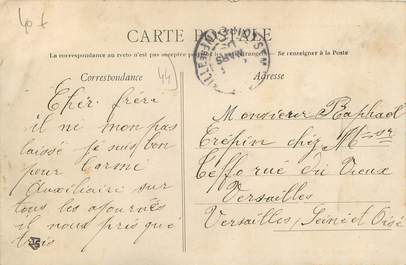 40 f
CARTE POSTALE
La correspondance au recto n'est pas acceptée par Se renseigner à la Poste
Correspondance
44
Adresse
Cher frère
il ne mon pas
laissé je suis bon
pour l'arme
Auxiliaire sur
tous les ajournés
il nous pris que
trois
Monsieur Raphael
Crépin chez Mr
du Vieux
Versailles
Versailles, Seine et Oise